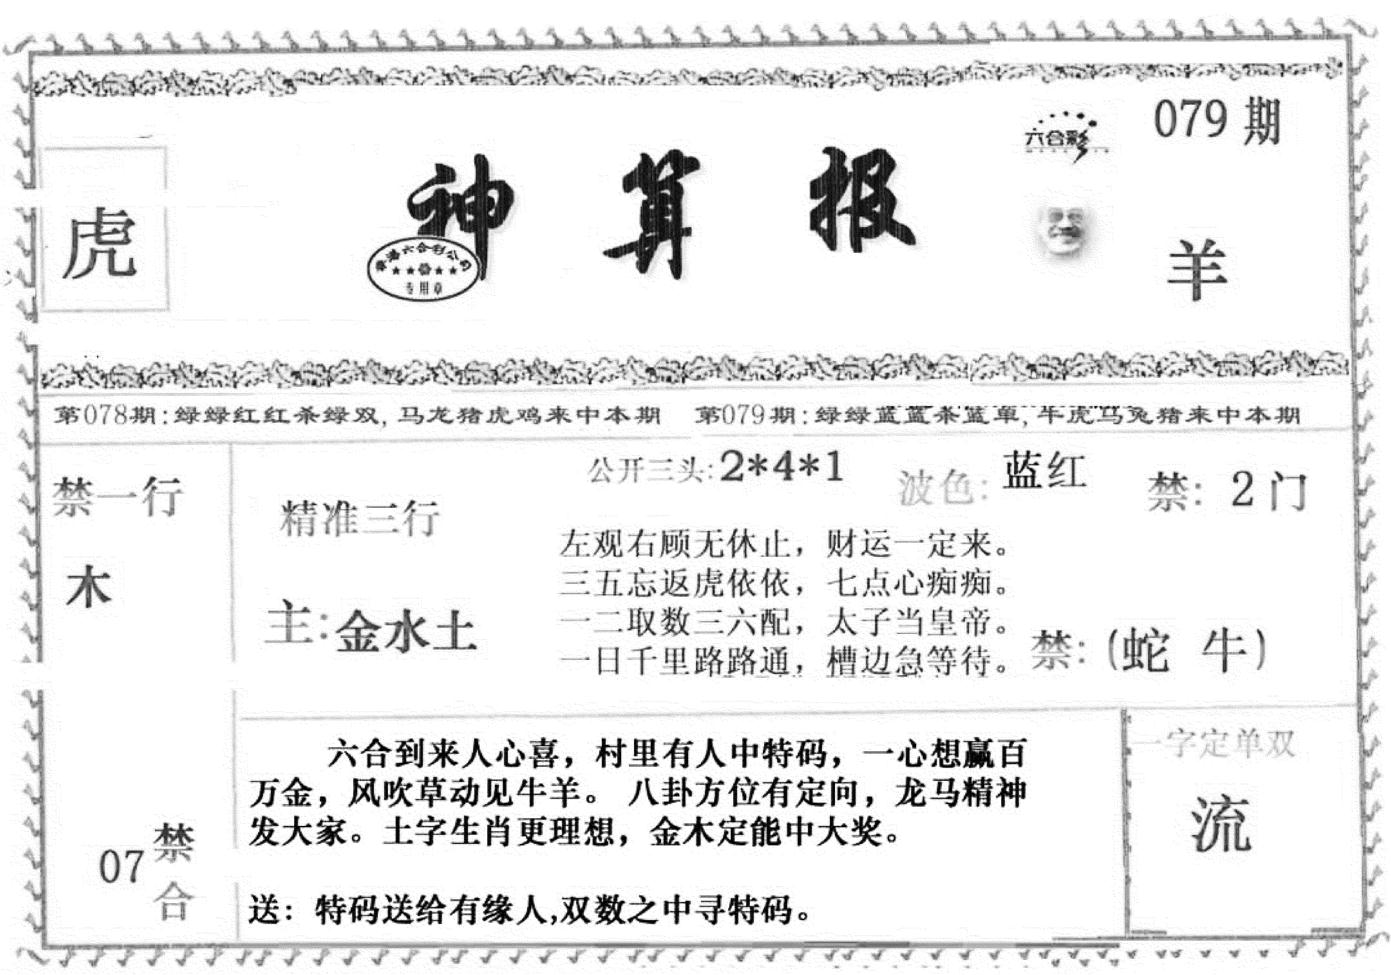 079期
六合彩
虎
神算报
香港六合彩公司
专用章
羊
第078期:绿绿红红杀绿双,马龙猪虎鸡来中本期 第079期:绿绿蓝蓝杀蓝单,牛虎马兔猪来中本期
禁一行
木
精准三行
主:金水土
公开三头:2*4*1
波色:蓝红
禁: 2门
左观右顾无休止，财运一定来。
三五忘返虎依依，七点心痴痴。
一二取数三六配，太子当皇帝。
一日千里路路通，槽边急等待。
禁:(蛇 牛)
六合到来人心喜，村里有人中特码，一心想赢百
万金，风吹草动见牛羊。 八卦方位有定向，龙马精神
发大家。土字生肖更理想，金木定能中大奖。
送：特码送给有缘人,双数之中寻特码。
07禁合
一字定单双
流